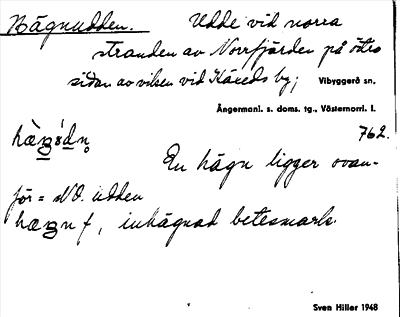 Hägnudden. Udde vid norra
stranden av Norrfjärden på östra
sidan av viken vid Käxeds by; Vibyggerå sn.
Ångermanl. s. doms. tg., Västernorrl. l.
762.
En hägn ligger ovan-
för = NO. udden
hægn f, inhägnad betesmark
Sven Hiller 1948